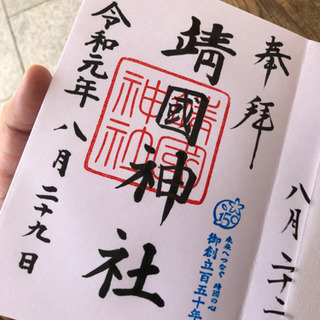 奉拝
靖國神社
令和元年八月二十九日
靖國神社
150
未来へつなぐ 靖国の心
御創立百五十年
八月二十二